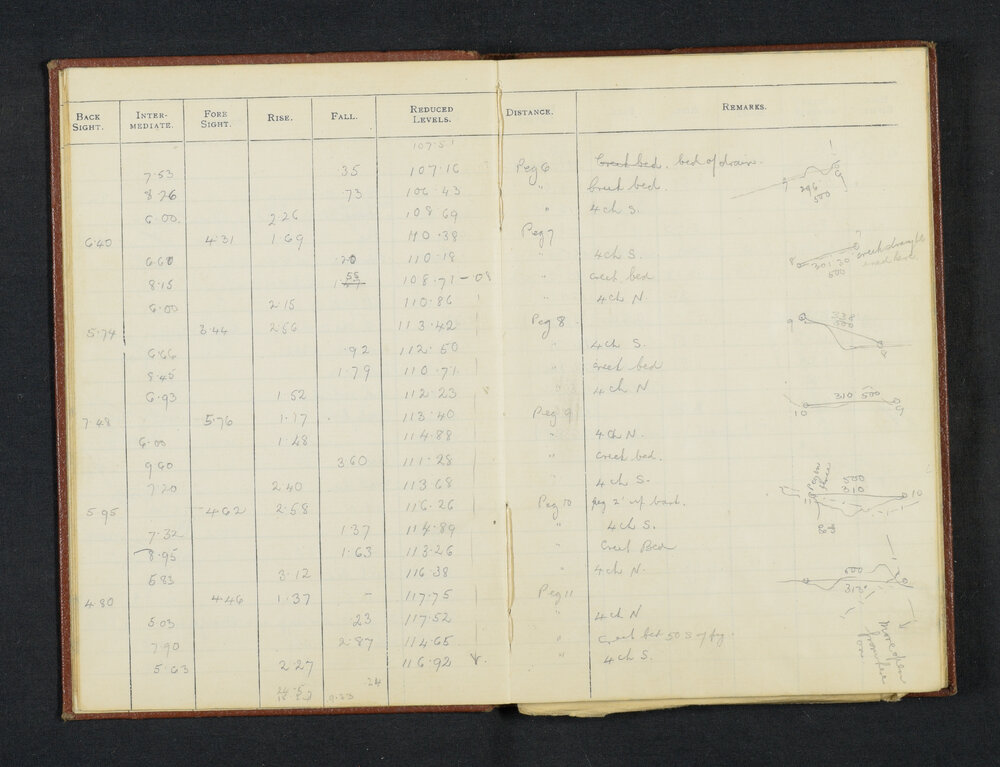 BACK SIGHT. INTER-MEDIATE. FORE SIGHT. RISE. FALL. REDUCED LEVELS. DISTANCE. REMARKS.
107.51
7.53 .35 107.16 Peg 6 Creek bed. bed of drain.
8.26 .73 106.43 " Creek bed.
6.00 2.26 108.69 " 4 ch S.
6.40 4.31 1.69 110.38 Peg 7
6.60 .20 110.18 " 4 ch S.
8.15 108.71 - .08 " Creek bed
6.00 2.15 110.86 " 4 ch N
5.74 3.44 2.56 113.42 Peg 8
6.66 .92 112.50 " 4 ch S.
8.45 1.79 110.71 " Creek bed
6.93 1.52 112.23 " 4 ch N
7.48 5.76 1.17 113.40 Peg 9
6.00 1.48 114.88 " 4 ch N.
9.60 3.60 111.28 " Creek bed.
7.20 2.40 113.68 " 4 ch S.
5.95 4.62 2.58 116.26 Peg 10 peg 2' up bank.
7.32 1.37 114.89 " 4 ch S.
8.95 1.63 113.26 " Creek Bed
5.83 3.12 116.38 " 4 ch N.
4.80 4.46 1.37 - 117.75 Peg 11
5.03 .23 117.52 " 4 ch N
7.90 2.87 114.65 " Creek bed 50 S of peg.
5.63 2.27 116.92 " 4 ch S.
.24
9.23
7 6
296
500
7
8
301.30
500
creek straight
9 328
500
8
10 310 500 9
500
310 10
500
313°
More open